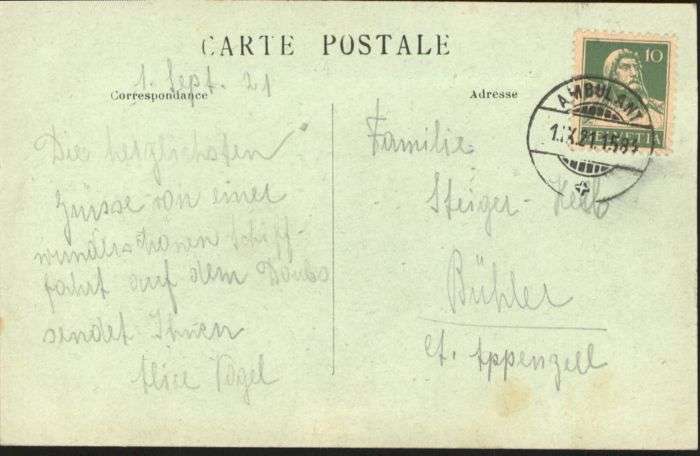 CARTE POSTALE
1. Sept. 21
Correspondance
Die herzlichsten
Grüsse von einer
wunderschönen Schiff-
fahrt auf dem Doubs
sendet Ihnen
Alice Vogel
Adresse
Familie
Steiger-
Bühler
Ct. Appenzell
10
HELVETIA
AMBULANT
1.IX.21.